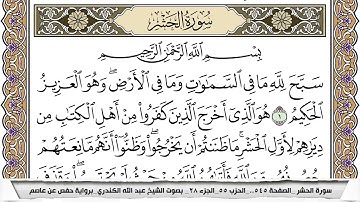 سُورَةُ الحَشْرِ
بِسْمِ اللَّهِ الرَّحْمَٰنِ الرَّحِيمِ
سَبَّحَ لِلَّهِ مَا فِي السَّمَٰوَٰتِ وَمَا فِي الْأَرْضِ ۖ وَهُوَ الْعَزِيزُ
الْحَكِيمُ ١ هُوَ الَّذِي أَخْرَجَ الَّذِينَ كَفَرُوا مِنْ أَهْلِ الْكِتَٰبِ مِن
دِيَٰرِهِمْ لِأَوَّلِ الْحَشْرِ ۚ مَا ظَنَنتُمْ أَن يَخْرُجُوا ۖ وَظَنُّوا أَنَّهُم مَّانِعَتُهُمْ
سورة الحشر_ الصفحة ٥٤٥_ الحزب ٥٥_ الجزء ٢٨_ بصوت الشيخ عبد الله الكندري_ برواية حفص عن عاصم